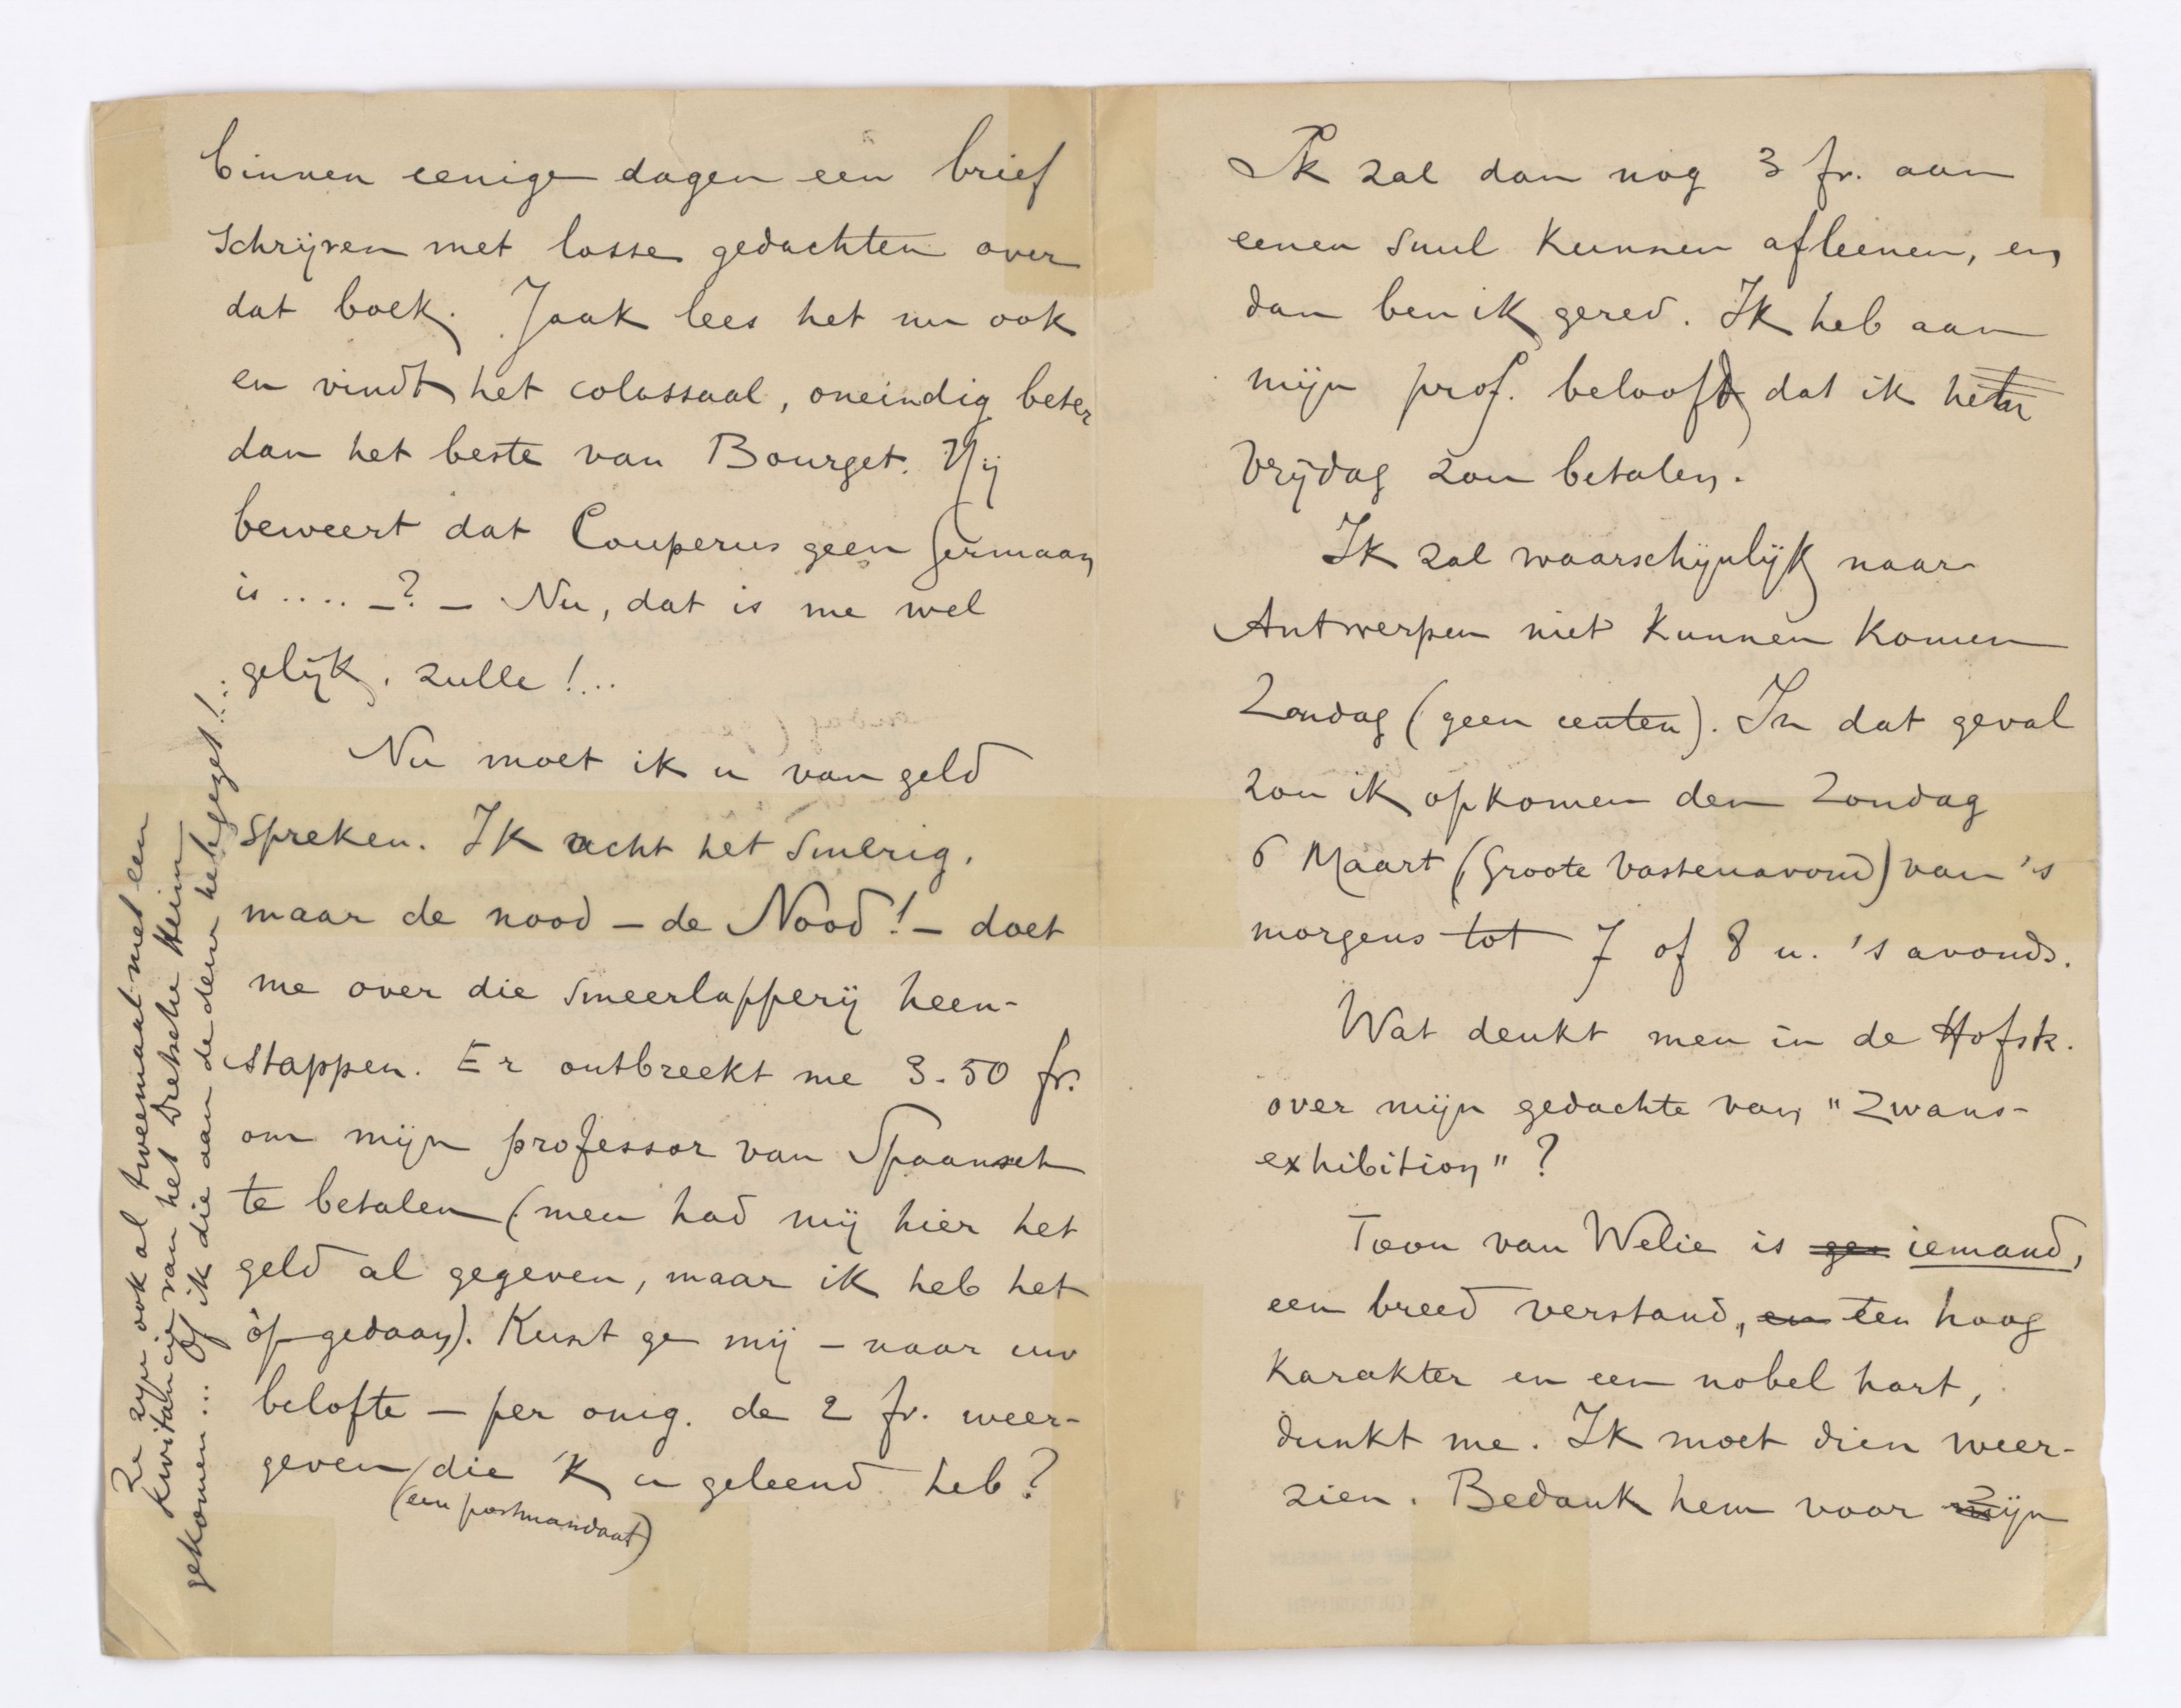 binnen eenige dagen een brief
schrijven met losse gedachten over
dat boek. Jaak lees het nu ook
en vindt het colossaal, oneindig beter
dan het beste van Bourget. Hij
beweert dat Couperus geen Germaan
is .... –? – Nu, dat is me wel
gelijk, zulle!...
Nu moet ik u van geld
spreken. Ik acht het smerig,
maar de nood – de Nood! – doet
me over die smeerlapperij heen-
stappen. Er ontbreekt me 3.50 fr.
om mijn professor van Spaansch
te betalen (men had mij hier het
geld al gegeven, maar ik heb het
óp gedaan). Kunt ge mij – naar uw
belofte – per omg. de 2 fr. weer-
geven die 'k u geleend heb?
(een postmandaat)
Ze zijn ook al tweemaal met een
kwitancie van het Dietsche Heim
gekomen... Of ik die aan de deur heb gezet!..
Ik zal dan nog 3 fr. aan
eenen smul kunnen afleenen, en
dan ben ik gered. Ik heb aan
mijn prof. beloofd dat ik hem
Vrijdag zou betalen.
Ik zal waarschijnlijk naar
Antwerpen niet kunnen komen
Zondag (geen centen). In dat geval
zou ik opkomen den Zondag
6 Maart (Groote Vastenavond) van 's
morgens tot 7 of 8 u. 's avonds.
Wat denkt men in de Hofstr.
over mijn gedachte van "Zwans-
exhibition"?
Toon van Welie is ge iemand,
een breed verstand, en een hoog
karakter en een nobel hart,
dunkt me. Ik moet dien weer-
zien. Bedank hem voor zijn